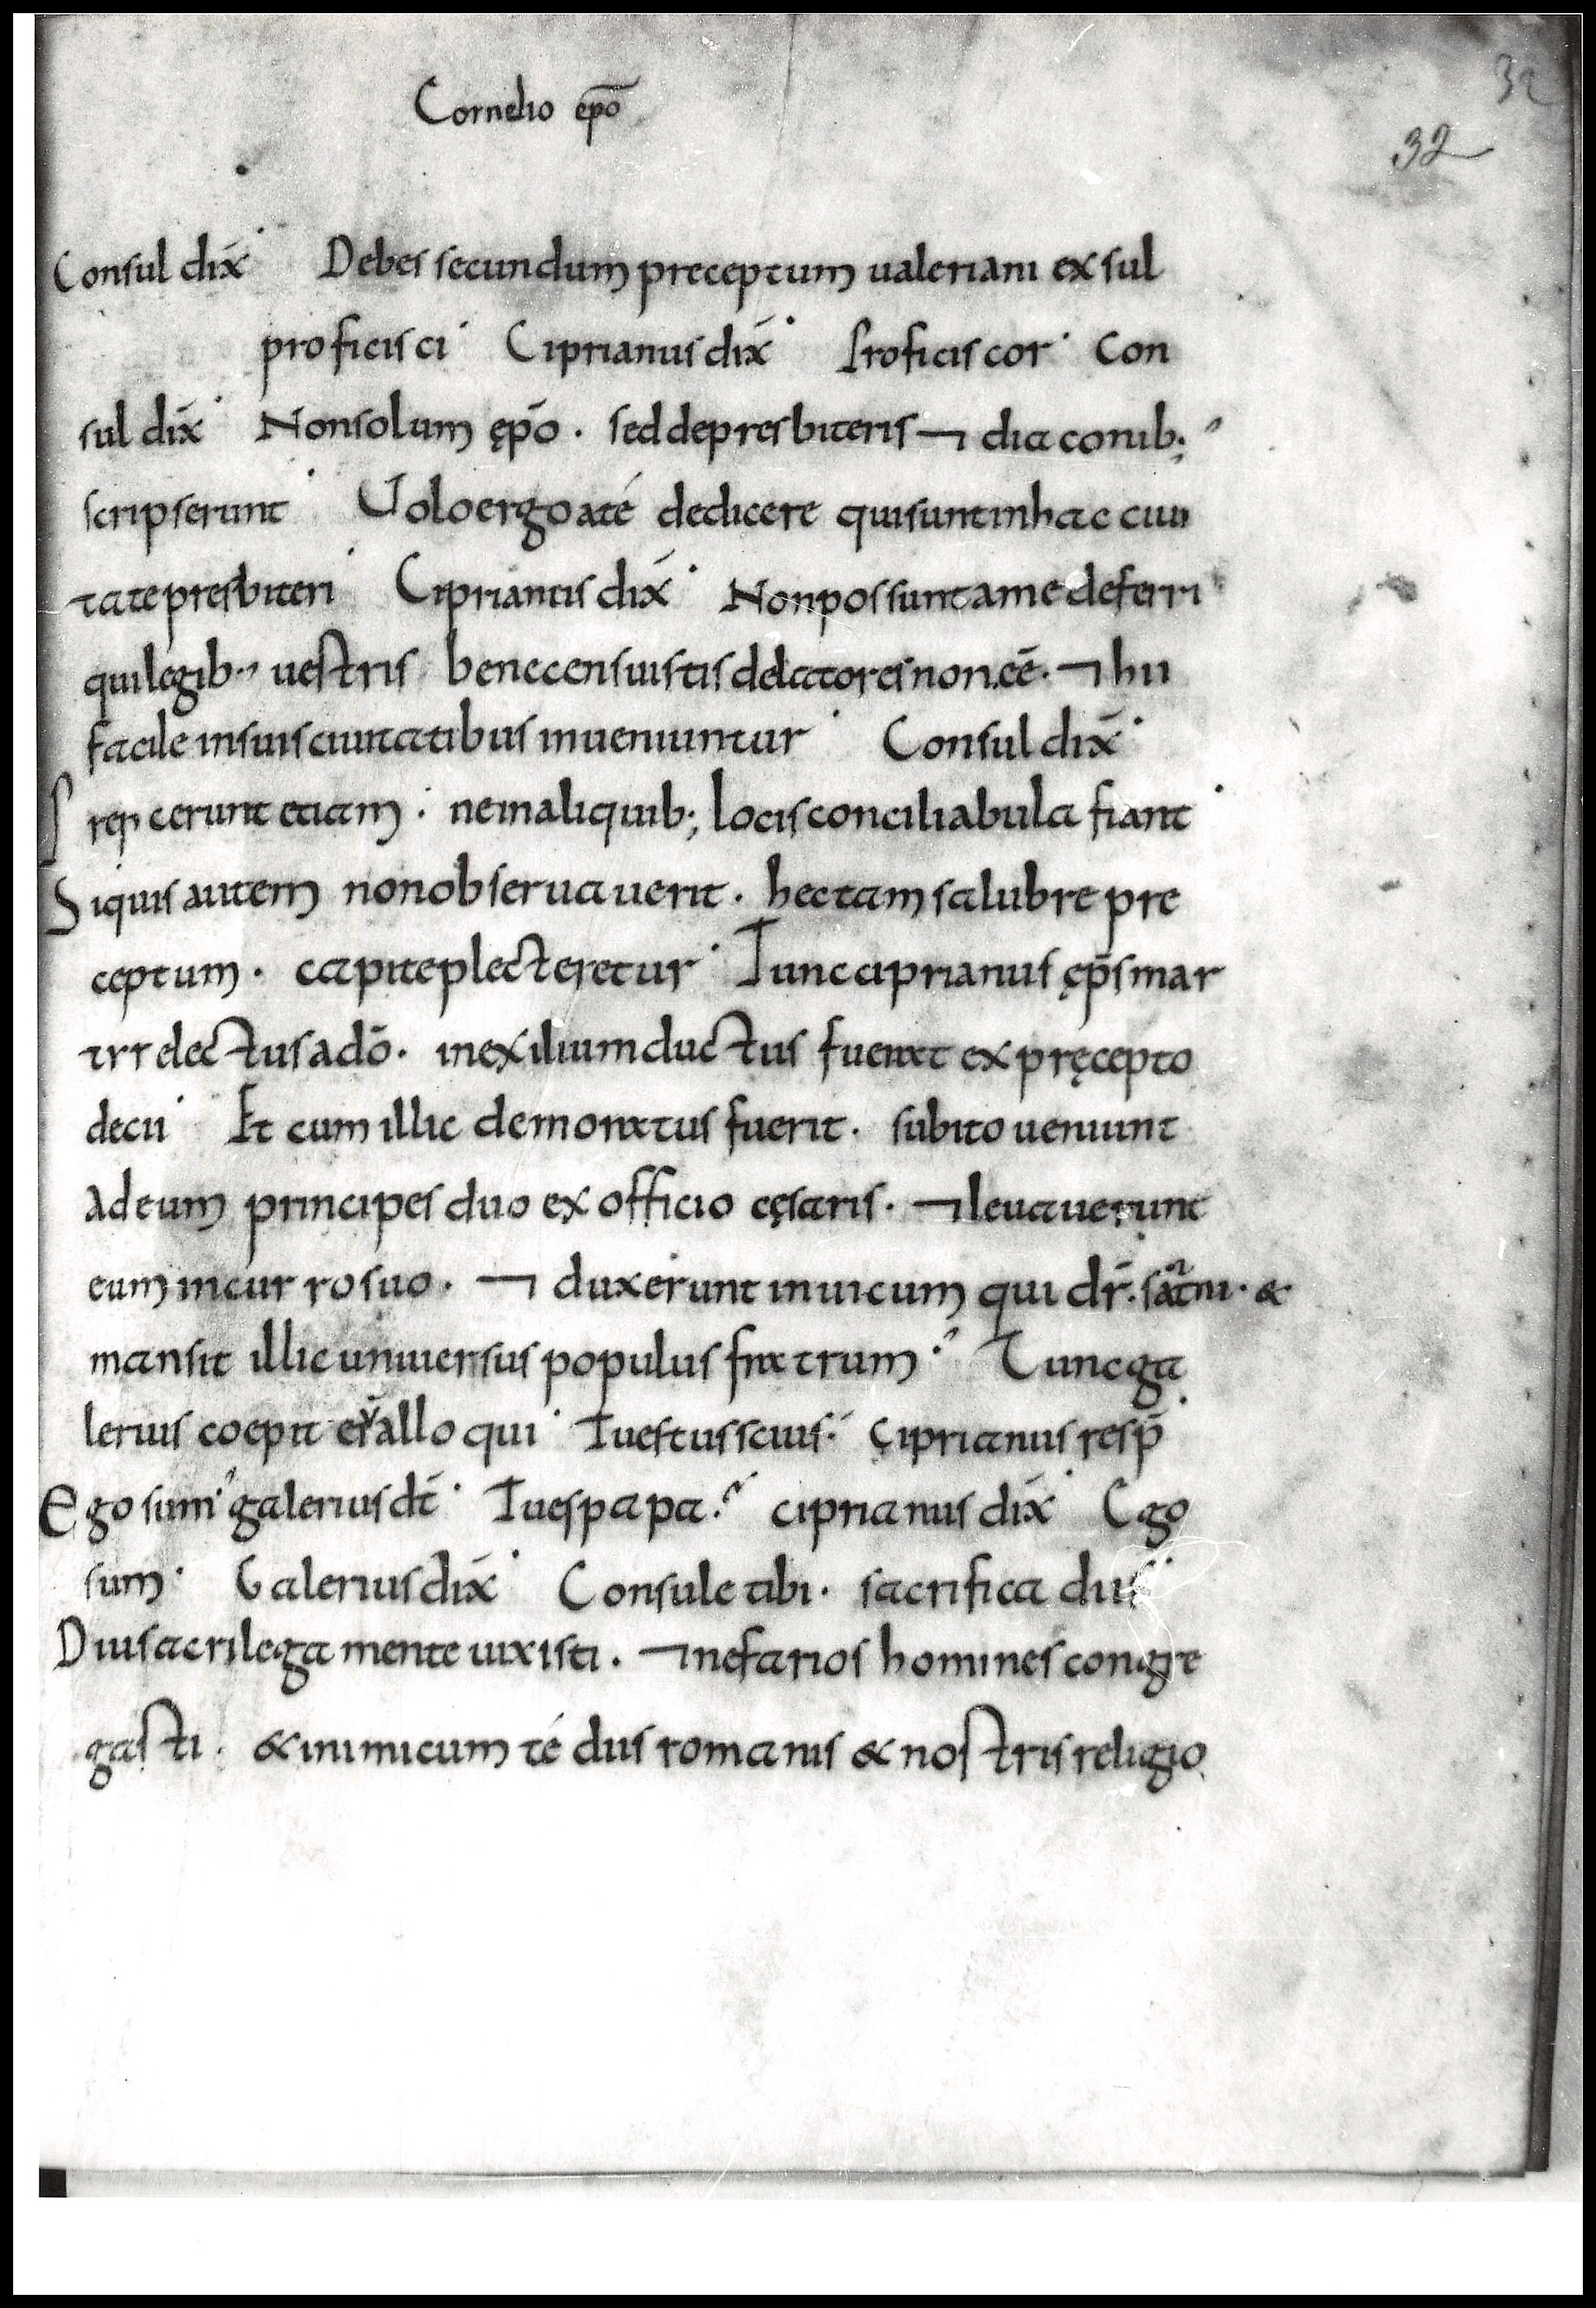 Cornelio ep̄o
32
32
Consul dix́ Debes secundum preceptum ualeriani exsul
proficisci Ciprianus dix́ Proficiscor Con
sul dix́ Non solum ęp̄o. sed de presbiteris ⁊ diaconib;
scripserunt Uolo ergo a té dedicere qui sunt in hac ciui
tate presbiteri Ciprianus dix́ Non possunt a me deferri
qui legib; uestris bene censuistis delatores non eē. ⁊ hii
facile in suis ciuitatibus inueniuntur Consul dix́
Preceperunt etiam. ne in aliquib; locis conciliabula fiant
Siquis autem non obseruauerit. hec tam salubre pre
ceptum. capite plecteretur Tunc ciprianus ęp̄s mar
tyr electus a dō. in exilium ductus fuerat ex pręcepto
decii Et cum illic demoratus fuerit. subito ueniunt
ad eum principes duo ex officio cęsaris. ⁊ leuauerunt
eum in curro suo. ⁊ duxerunt in uicum qui dr̄. satni. &
mansit illic uniuersus populus fratrum Tunc ga
lerius coepit ei allo qui Tu es tusscius. Ciprianus resp̄
Ego sum galerius dt́ Tu es papa. ciprianus dix́ Ego
sum Galerius dix́ Consule tibi. sacrifica diis
Diu sacrilega mente uixisti. ⁊ nefarios homines congre
gasti. & inimicum té diis romanis & nostris religio